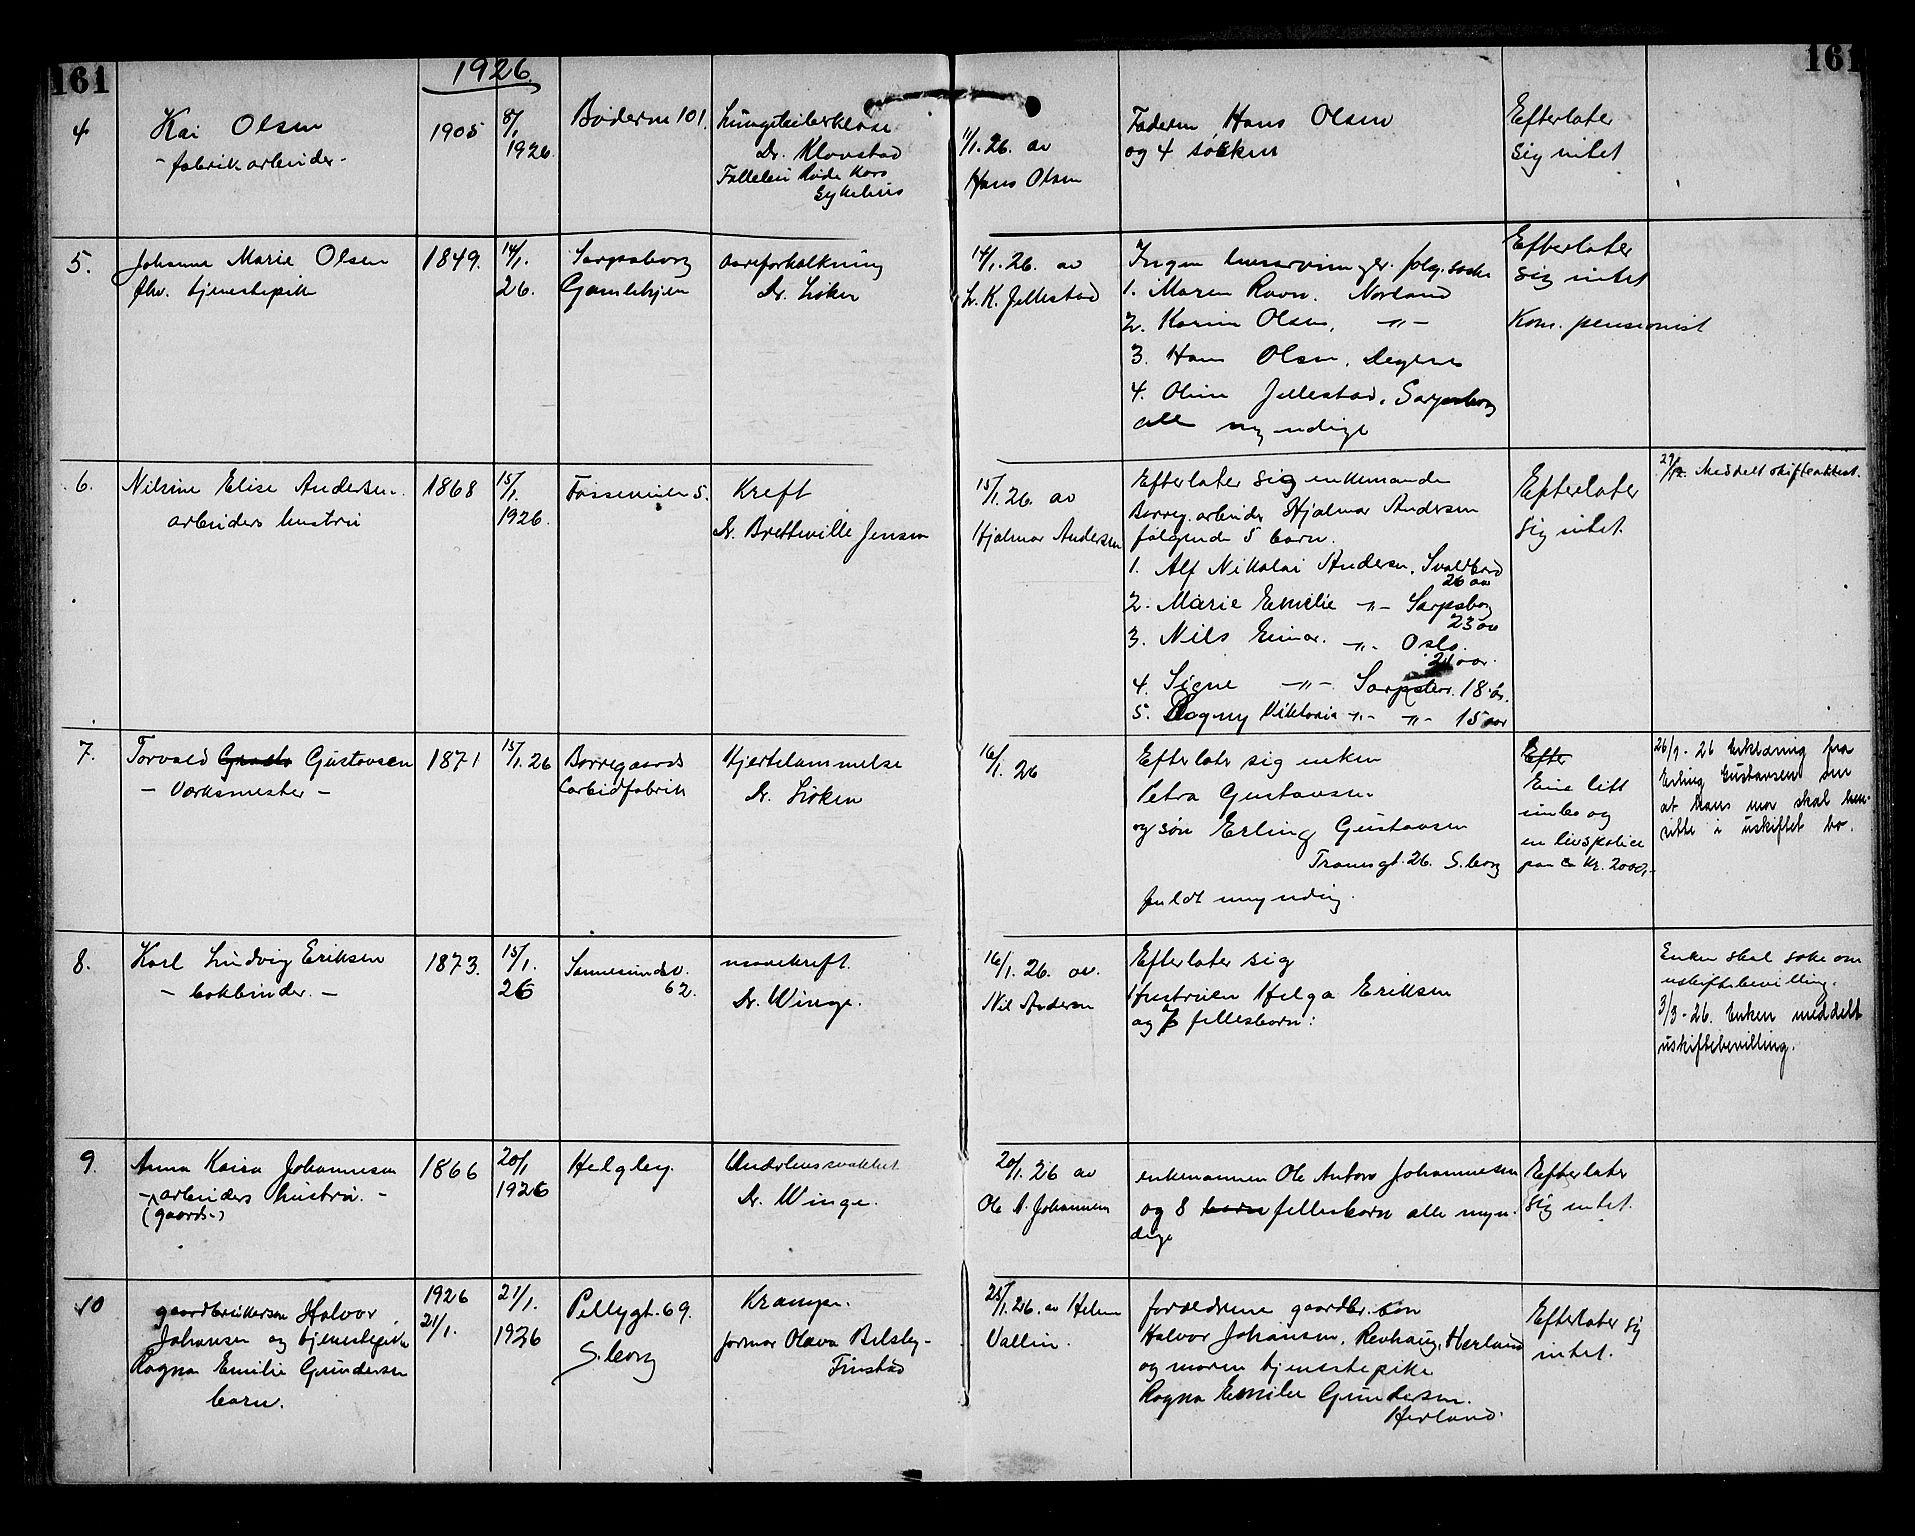 161
161
1926.
4
Kai Olsen
- fabrikarbeider -
1905
8/1
1926.
Boderne 101.
Lungetuberklose
Dr. Klovstad
Røde Kors
Sykehus
11/1. 26. av
Hans Olsen
Faderen, Hans Olsen
og 4 søsken
Efterlater
sig intet
5.
Johanne Marie Olsen
fhv. tjenestepike
1849.
14/1.
26.
Sarpsborg
Gamlehjem
aareforkalkning
Dr. Lioken
14/1. 26. av
L. K. Jellestad
Ingen livsarvinger. følg. søsk.
1. Maren Ravn. Norland
2. Karin Olsen, -"-
3. Hans Olsen, Degernes
4. Oline Jellestad, Sarpsborg
alle myndige
Efterlater
sig intet
Kom. pensionist
6.
Nilsine Elise Andersen.
arbeiders hustru
1868
15/1.
1926.
Fosseveien 5.
Kreft
Dr. Bretteville Jensen
15/1. 26. av
Hjalmar Andersen
Efterlater sig enkemanden
Borreg. arbeider Hjalmar Andersen
følgende 5 barn.
1. Alf Nikolai Andersen, Svaldbard
26 aar
2. Marie Emilie -"- Sarpsborg
23 aar
3. Nils Einar. -"- Oslo.
21 aar.
4. Signe -"- Sarpsbor. 18 år.
5. Dagny Viktoria -"- -"- 15 aar
Efterlater
sig intet.
29/12. Meddelt skifteattest.
7.
Torvald Gustavsen
- Værksmester -
1871
15/1. 26
Borregaards
Carbidfabrik
Hjertelammelse
Dr. Lioken
16/1. 26
Efterlater sig enken
Petra Gustavsen
og søn Erling Gustavsen
Tromsgt. 26. S.borg
fuldt myndig.
Efter
Eiø litt
innbo og
en livspolice
paa Kr. 2000,-
26/9 - 26 Erklæring fra
Erling Gustavsen om
at hans mor skal hen-
sitte i uskiftet bo.
8.
Karl Ludvig Eriksen
- bokbinder. -
1873.
15/1.
26
Sannesundsv.
62.
mavekreft.
Dr. Winge.
16/1. 26. av.
Nil Andersen
Efterlater sig
Hustruen Helga Eriksen
og fellesbarn:
Enken skal søke om
uskiftebevilling.
3/3 - 26. Enken meddelt
uskiftebevilling.
9.
Anna Kaisa Johannesen
- arbeiders hustru. -
(gaards-)
1866
20/1
1926
Helgby.
Dr. Winge.
20/1. 26 av
Ole A. Johannesen
enkemannen Ole Anton Johannesen
og 8 barn fellesbarn alle myn-
dige
Efterlater
sig intet.
10
gaardbrukersøn Halvor
Johansen og tjenestepike
Ragna Emilie Gundersen
barn.
1926
21/1.
21/1.
1926
Pellygt. 69.
S.borg
Krampe.
jormor Olava Bilsby-
Finstad
25/1. 26. av Helene
Vallin.
foreldrene gaardbr. søn
Halvor Johansen, Revhaug, Herland
og moren tjenestepike
Ragna Emilie Gundersen.
Herland.
Efterlater sig
intet.